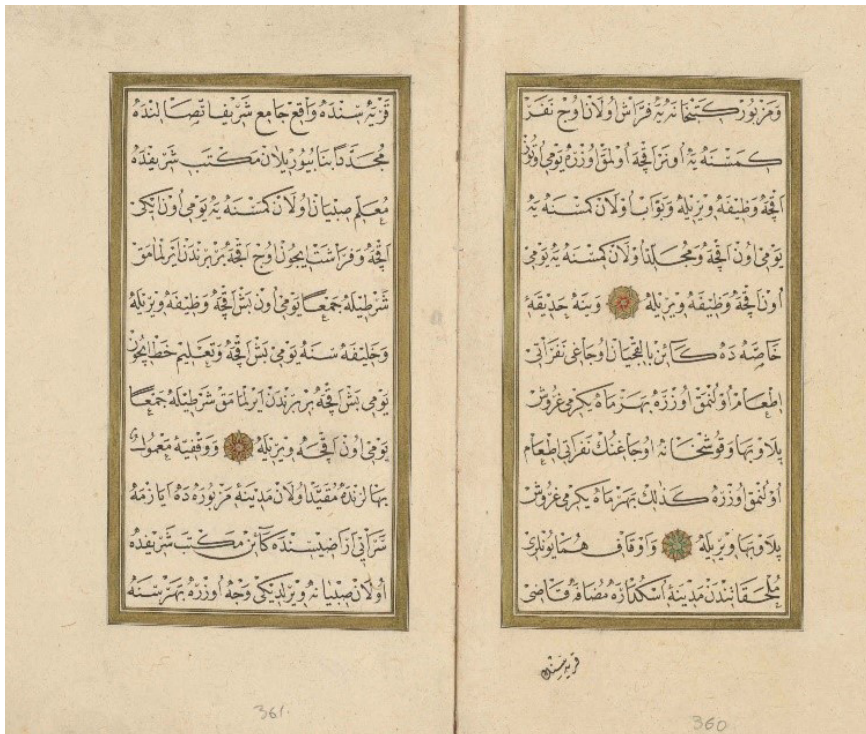 و مزبور کتبخانه یه فراش اولان اوچ نفر
کمسنه یه اونر اقچه اولمق اوزره یومی اوتوز
اقچه وظیفه ویریله و بواب اولان کمسنه یه
یومی اون اقچه و مجلد اولان کمسنه یه یومی
اون اقچه وظیفه ویریله وینه حدیقۀ
خاصه ده کائن بالقجیان اوجاغی نفراتی
اطعام اولنمق اوزره بهر ماه یکرمی غروش
پلاو بها و قوشخانه اوجاغنك نفراتی اطعام
اولنمق اوزره کذلك بهر ماه یکرمی غروش
پلاو بها ویریله و اوقاف همایونلری
ملحقاتندن مدینۀ اسکداره مضافه قاضی
قریه سنده
360
قریه سنده واقع جامع شریف اتصالنده
مجددا بنا بیوریلان مکتب شریفده
معلم صبیان اولان کمسنه یه یومی اون ایکی
اقچه و فراشت ایچون اوچ اقچه بربرندن ایرلمامق
شرطیله جمعا یومی اون بش اقچه وظیفه ویریله
و خلیفه سنه یومی بش اقچه و تعلیم خط ایچون
یومی بش اقچه بربرندن ایرلمامق شرطیله جمعا
یومی اون اقچه ویریله و وقفیۀ معمول
بهالرنده مقید اولان مدینۀ مزبوره ده ایازمه
سرائی اراضیسنده کائن مکتب شریفده
اولان صبیانه ویرلدیکی وجه اوزره بهر سنه
361